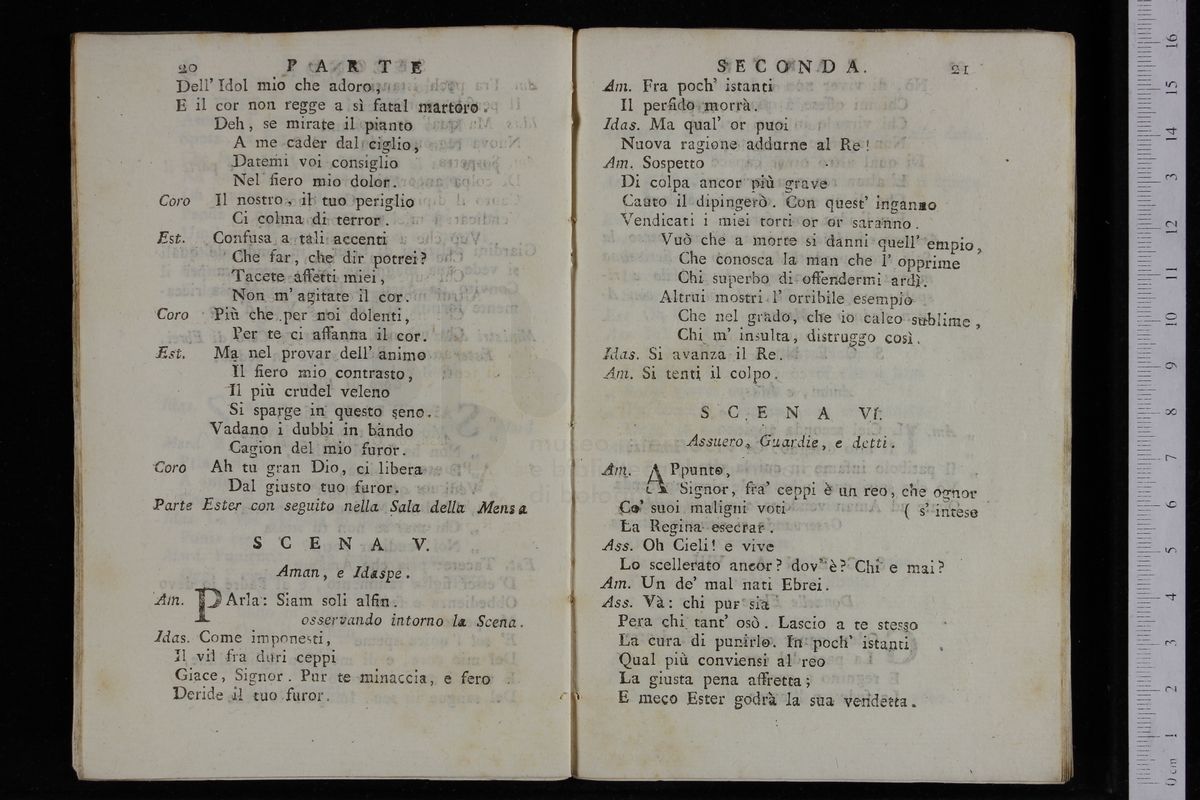 20 PARTE
Dell' Idol mio che adoro,
E il cor non regge a sì fatal martoro.
Deh, se mirate il pianto
A me cader dal ciglio,
Datemi voi consiglio
Nel fiero mio dolor.
Coro Il nostro, il tuo periglio
Ci colma di terror.
Est. Confusa a tali accenti
Che far, che dir potrei?
Tacete affetti miei,
Non m' agitate il cor.
Coro Più che per noi dolenti,
Per te ci affanna il cor.
Est. Ma nel provar dell' animo
Il fiero mio contrasto,
Il più crudel veleno
Si sparge in questo seno.
Vadano i dubbi in bando
Cagion del mio furor.
Coro Ah tu gran Dio, ci libera
Dal giusto tuo furor.
Parte Ester con seguito nella Sala della Mensa
SCENA V.
Aman, e Idaspe.
Am. PArla: Siam soli alfin.
osservando intorno la Scena.
Idas. Come imponesti,
Il vil fra duri ceppi
Giace, Signor. Pur te minaccia, e fero
Deride il tuo furor.
SECONDA. 21
Am. Fra poch' istanti
Il perfido morrà.
Idas. Ma qual' or puoi
Nuova ragione addurne al Re!
Am. Sospetto
Di colpa ancor più grave
Cauto il dipingerò. Con quest' inganno
Vendicati i miei torti or or saranno.
Vuò che a morte si danni quell' empio,
Che conosca la man che l' opprime
Chi superbo di offendermi ardì.
Altrui mostri l' orribile esempio
Che nel grado, che io calco sublime,
Chi m' insulta, distruggo così.
Idas. Si avanza il Re.
Am. Si tenti il colpo.
SCENA VI.
Assuero, Guardie, e detti.
Am. APpunto,
Signor, fra' ceppi è un reo, che ognor
Co' suoi maligni voti ( s' intese
La Regina esecrar.
Ass. Oh Cieli! e vive
Lo scellerato ancor? dov' è? Chi e mai?
Am. Un de' mal nati Ebrei.
Ass. Và: chi pur sia
Pera chi tant' osò. Lascio a te stesso
La cura di punirlo. In poch' istanti
Qual più conviensi al reo
La giusta pena affretta;
E meco Ester godrà la sua vendetta.